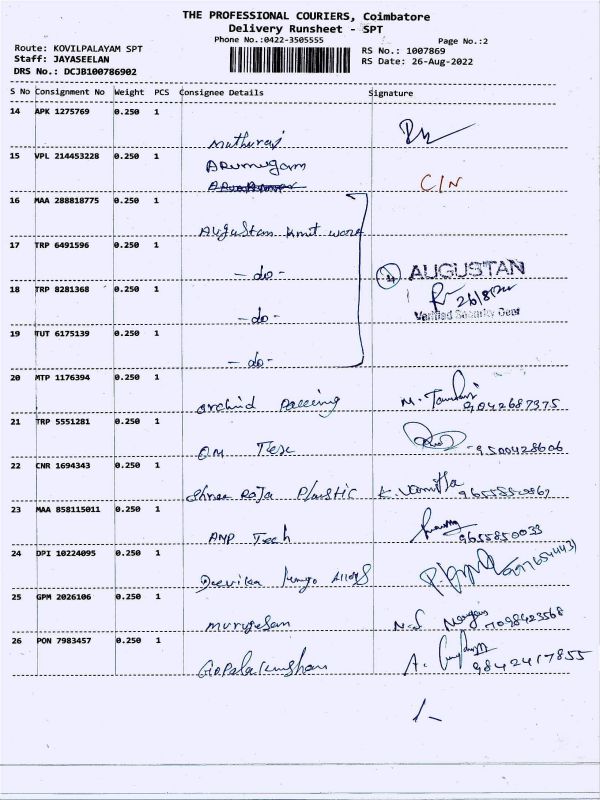 THE PROFESSIONAL COURIERS, Coimbatore
Delivery Runsheet - SPT
Phone No.:0422-3505555
Page No.:2
Route: KOVILPALAYAM SPT
RS No.: 1007869
Staff: JAYASEELAN
RS Date: 26-Aug-2022
DRS No.: DCJB100786902
S No Consignment No Weight PCS Consignee Details Signature
14 APK 1275769 0.250 1
Muthuraj
15 VPL 214453228 0.250 1
Arumugam
C/N
16 MAA 288818775 0.250 1
Augustan knit wear
17 TRP 6491596 0.250 1
- do -
AUGUSTAN
18 TRP 8281368 0.250 1
26/8/22
- do -
Verified Security Dept
19 TUT 6175139 0.250 1
- do -
20 MTP 1176394 0.250 1
orchid Paccing M. 9842687375
21 TRP 5551281 0.250 1
QM Tex - 9500428606
22 CNR 1694343 0.250 1
Shree Raja Plastic K. Vanitha
23 MAA 858115011 0.250 1
AMP Tech 9655850033
24 DPI 10224095 0.250 1
Deevika
25 GPM 2026106 0.250 1
Murugesan 7098423568
26 PON 7983457 0.250 1
Gopalakrishnan A. 9842417855